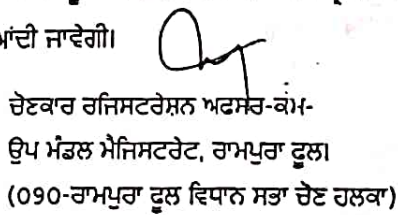 ਆਂਦੀ ਜਾਵੇਗੀ।
ਚੋਣਕਾਰ ਰਜਿਸਟਰੇਸ਼ਨ ਅਫਸਰ-ਕਮ-
ਉਪ ਮੰਡਲ ਮੈਜਿਸਟਰੇਟ, ਰਾਮਪੁਰਾ ਫੂਲ।
(090-ਰਾਮਪੁਰਾ ਫੂਲ ਵਿਧਾਨ ਸਭਾ ਚੋਣ ਹਲਕਾ)